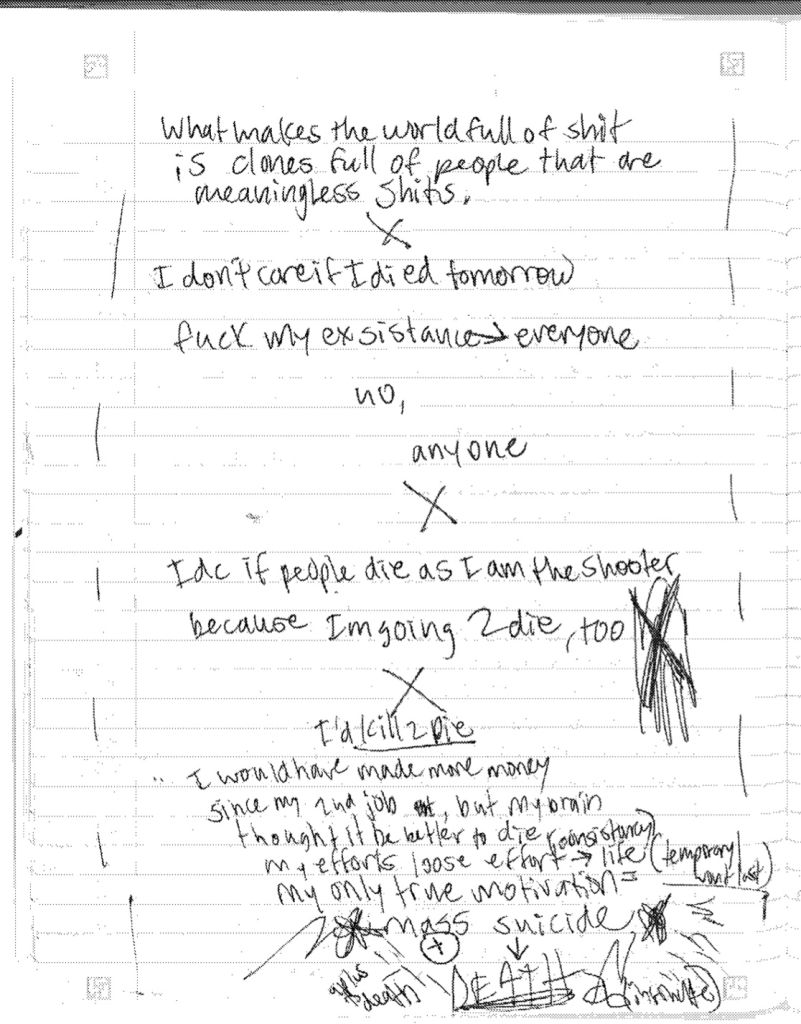 What makes the world full of shit
is clones full of people that are
meaningless shits.
X
I don't care if I died tomorrow
fuck my exsistance → everyone
no,
anyone
X
Idc if people die as I am the shooter
because Im going 2 die, too
X
I'd kill 2 Die
I would have made more money
since my 2nd job , but my brain
thought it be better to die (consistancy)
my efforts loose effort → life (temporary
wont last)
my only true motivation =
mass suicide
+ ↓
plus death DEATH (infinite)